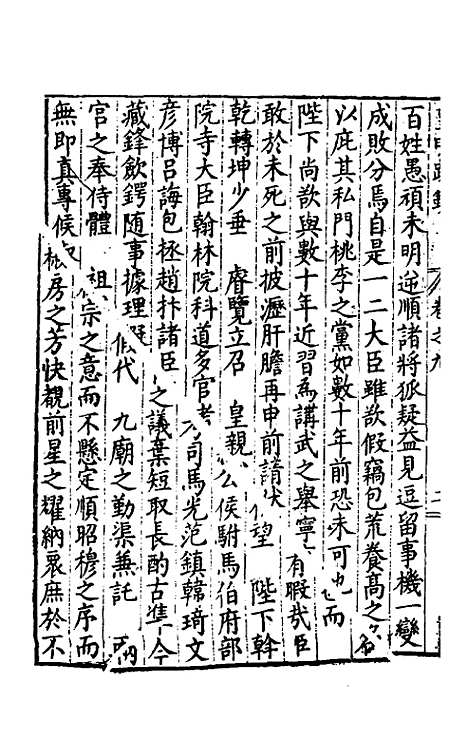 百姓愚頑未明逆順諸將狐疑益見逗留事機一變
成敗分焉自是一二大臣雖欲假竊包荒養高之名
以庇其私門桃李之黨如數十年前恐未可也而
陛下尚欲與數十年近習為講武之舉寧 有暇哉臣
敢於未死之前披瀝肝膽再申前請伏 望 陛下幹
乾轉坤少垂 睿覽立召 皇親 公侯駙馬伯府部
院寺大臣翰林院科道多官 司馬光范鎮韓琦文
彥博呂誨包拯趙抃諸臣 之議棄短取長酌古準今
藏鋒歛鍔隨事據理 代 九廟之勤渠兼託
官之奉侍體 祖宗之意而不懸定順昭穆之序而
無即真專候 椒房之芳快覩前星之耀納衆庶於不